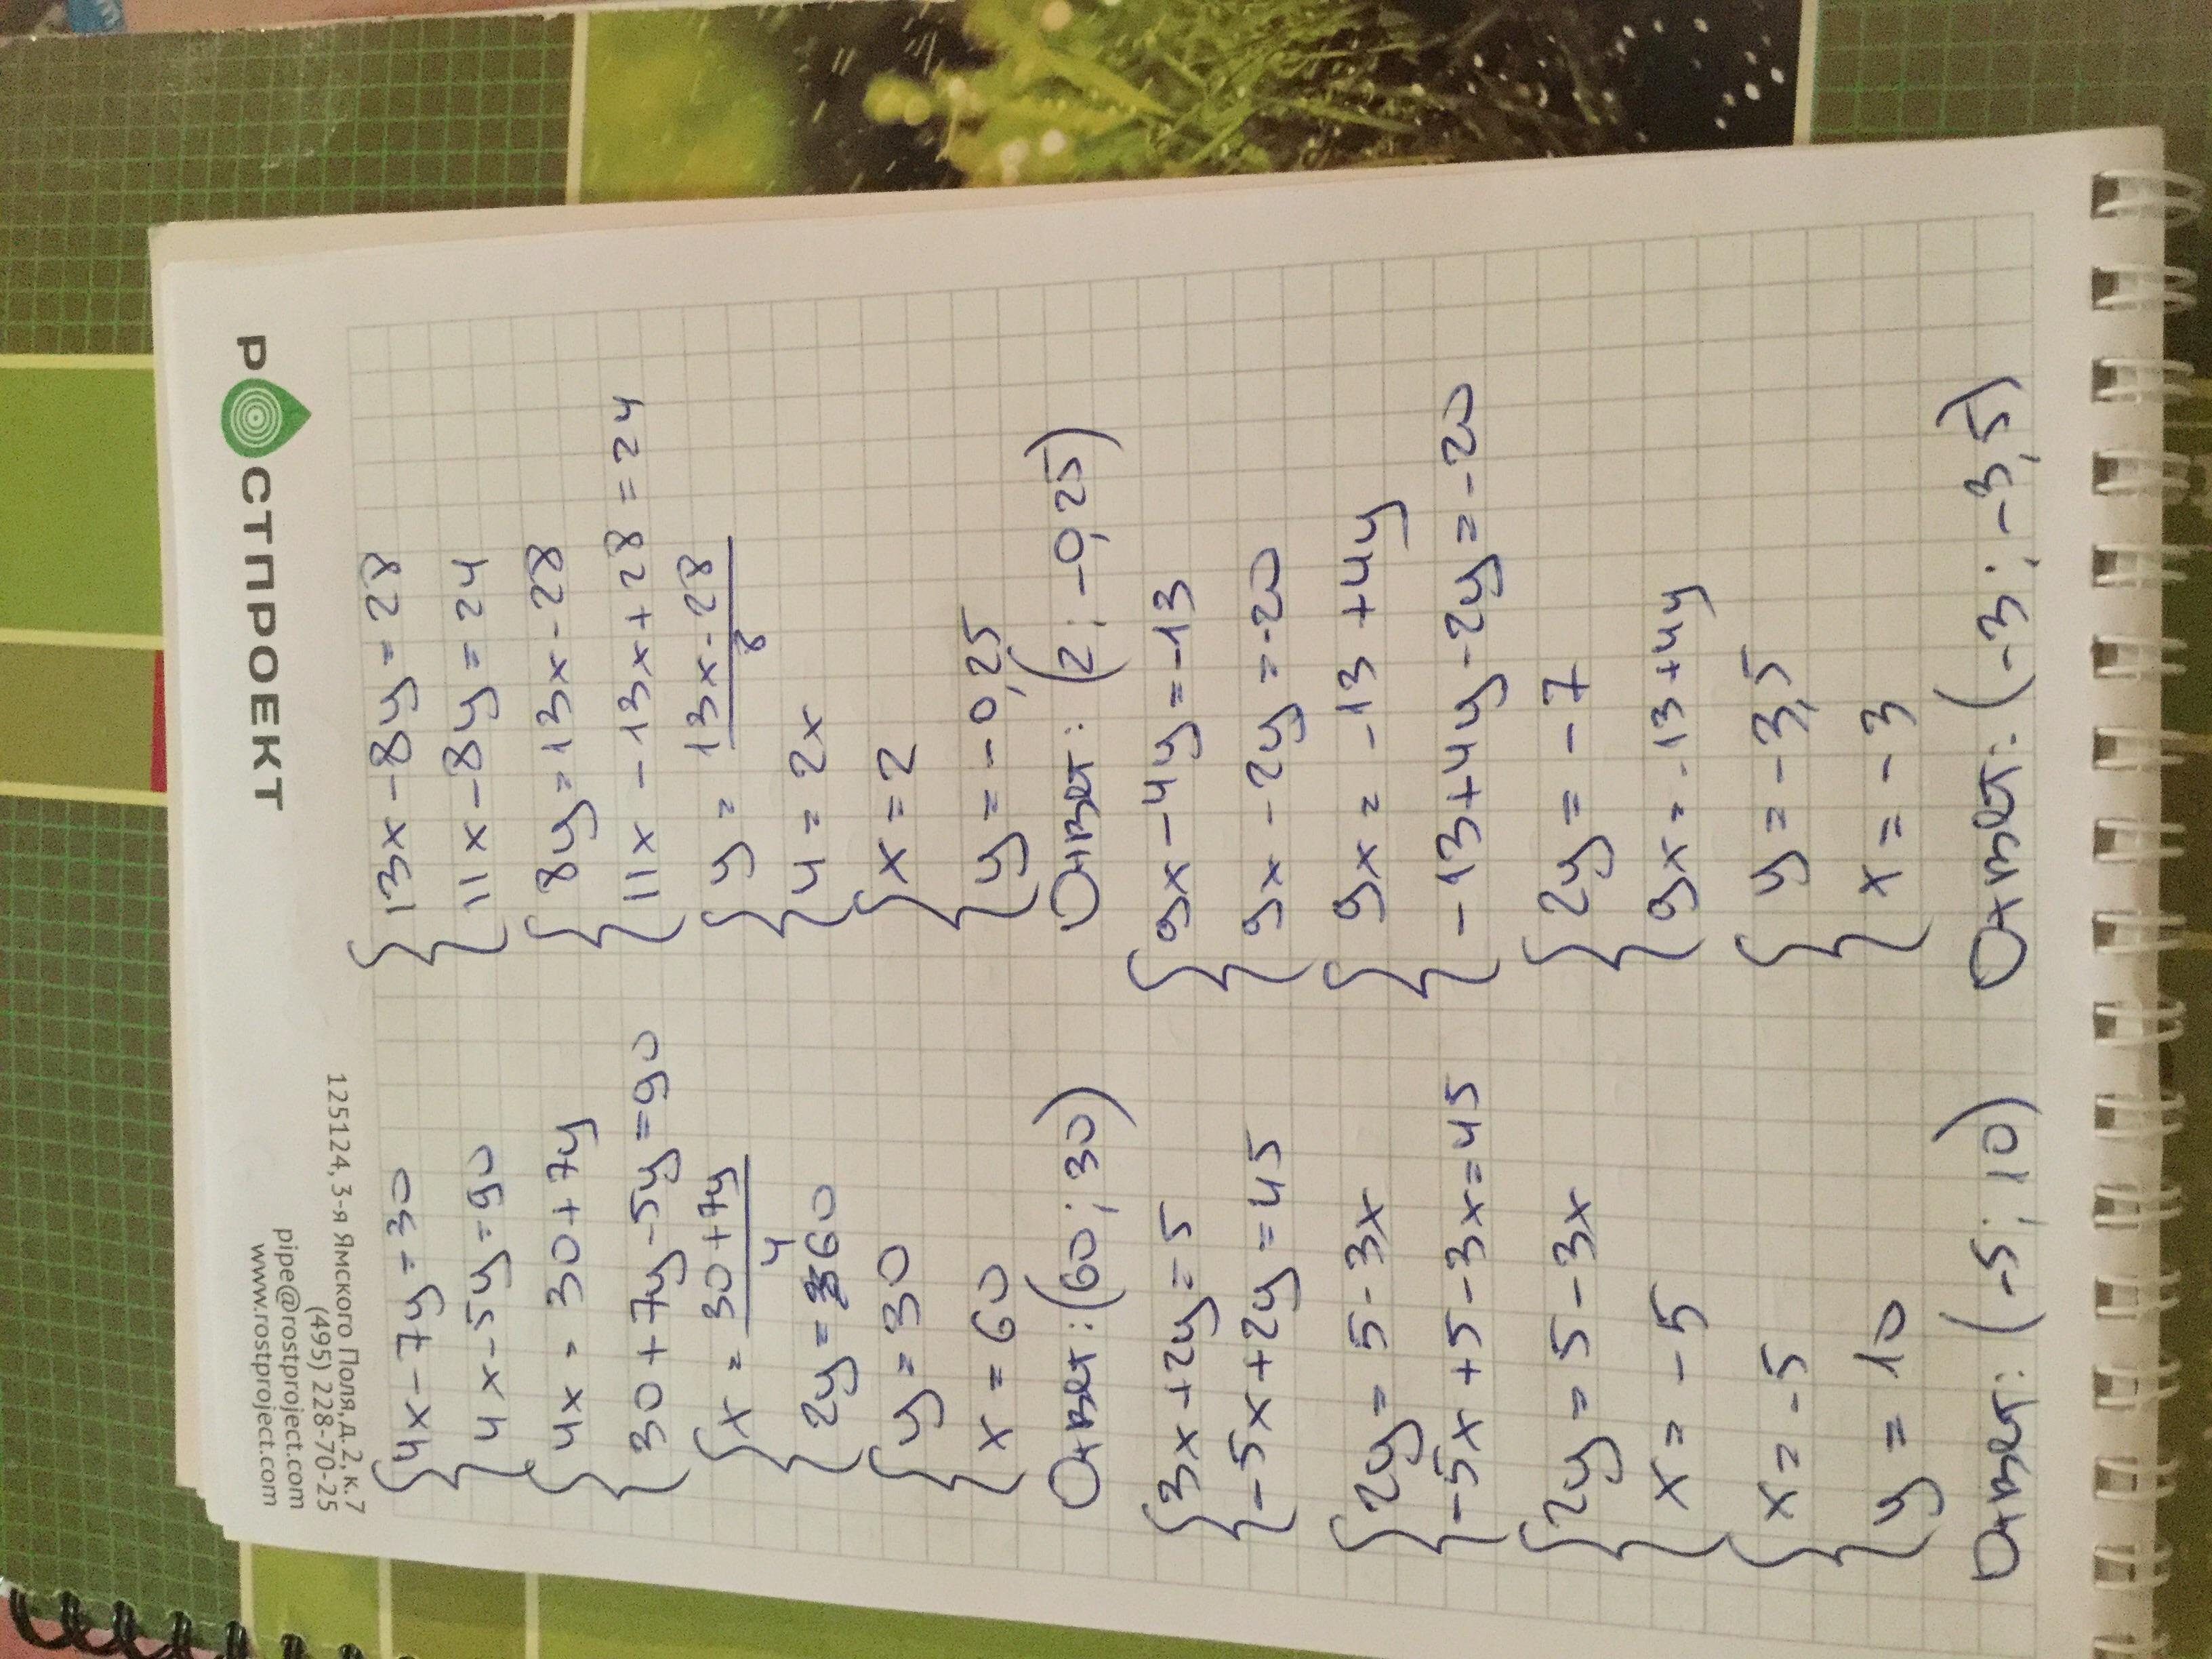 РОСТПРОЕКТ
125124, 3-я Ямского Поля,д.2, к.7
(495) 228-70-25
pipe@rostproject.com
www.rostproject.com
{4x-7y=30
4x-5y=90
{4x=30+7y
30+7y-5y=90
{x=30+7y/4
2y=60
{y=30
x=60
Ответ:(60;30)
{3x+2y=5
-5x+2y=45
{2y=5-3x
-5x+5-3x=45
{2y=5-3x
x=-5
{x=-5
y=10
Ответ:(-5;10)
{13x-8y=28
11x-8y=24
{8y=13x-28
11x-13x+28=24
{y=13x-28/8
4=2x
{x=2
y=-0,25
Ответ:(2;-0,25)
{9x-4y=-13
9x-2y=-20
{9x=-13+4y
-13+4y-2y=-20
{2y=-7
9x=-13+4y
{y=-3,5
x=-3
Ответ:(-3;-3,5)